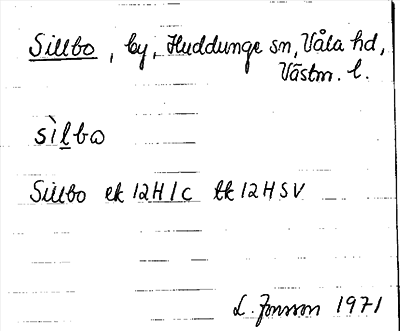 Sillbo, by, Huddunge sn, Våla hd,
Västm. l.
sìlbo
Sillbo ek 12H1c tk 12HSV
L. Jonsson 1971